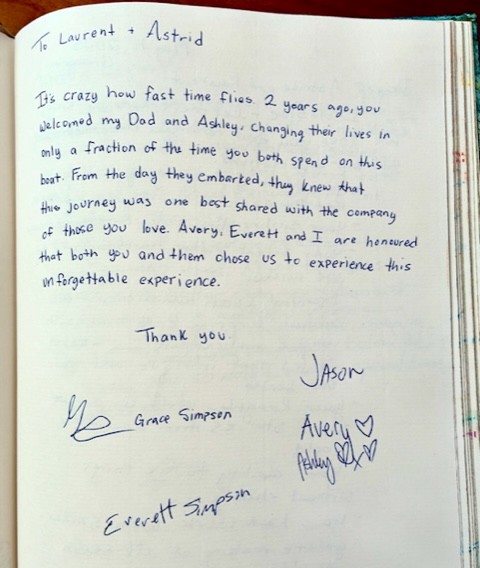 To Laurent + Astrid
It's crazy how fast time flies. 2 years ago, you
welcomed my Dad and Ashley, changing their lives in
only a fraction of the time you both spend on this
boat. From the day they embarked, they knew that
this journey was one best shared with the company
of those you love. Avery, Everett and I are honoured
that both you and them chose us to experience this
unforgettable experience.
Thank you.
Jason
Grace Simpson
Avery
Ashley
Everett Simpson